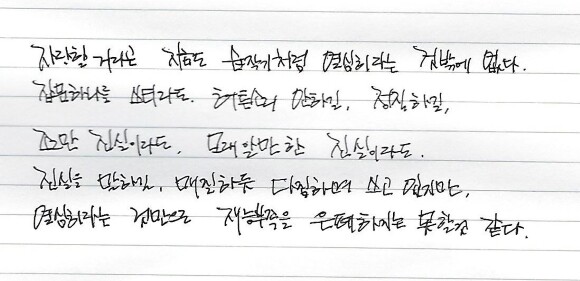 자랑할 거라곤 지금도 습작기처럼 열심히라는 것밖에 없다.
잡문하나를 쓰더라도, 허튼소리 안하길, 정직하길,
조그만 진실이라도, 모래알만한 진실이라도.
진실을 말하길, 매질하듯 다짐하며 쓰고 있지만,
열심히라는 것만으로 재능부족을 은폐하지는 못할것 같다.